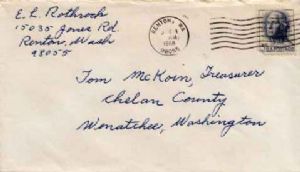 E. L. Rothrock
15035 Jones Rd
Renton, Wash
98055
RENTON, WA
1968
98055
Tom McKoin, Treasurer
Chelan County
Wenatchee, Washington